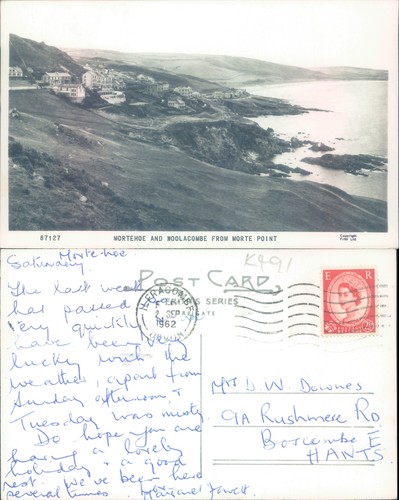 87127
MORTEHOE AND WOOLACOMBE FROM MORTE POINT
Copyright
Frith Ltd.
K491
Mortehoe
Saturday.
The last week
has passed
very quickly
have been
lucky with the
weather, apart from
Sunday afternoon +
Tuesday was misty.
Do hope you are
having a lovely
holiday + a good
rest. We've been here
several times.
Margaret
POST CARD
SERIES
ILFRACOMBE
2 SEP
1962
DEVON
E R
Mrs D. W. Downes
9A Rushmere Rd
Boscombe E
HANTS